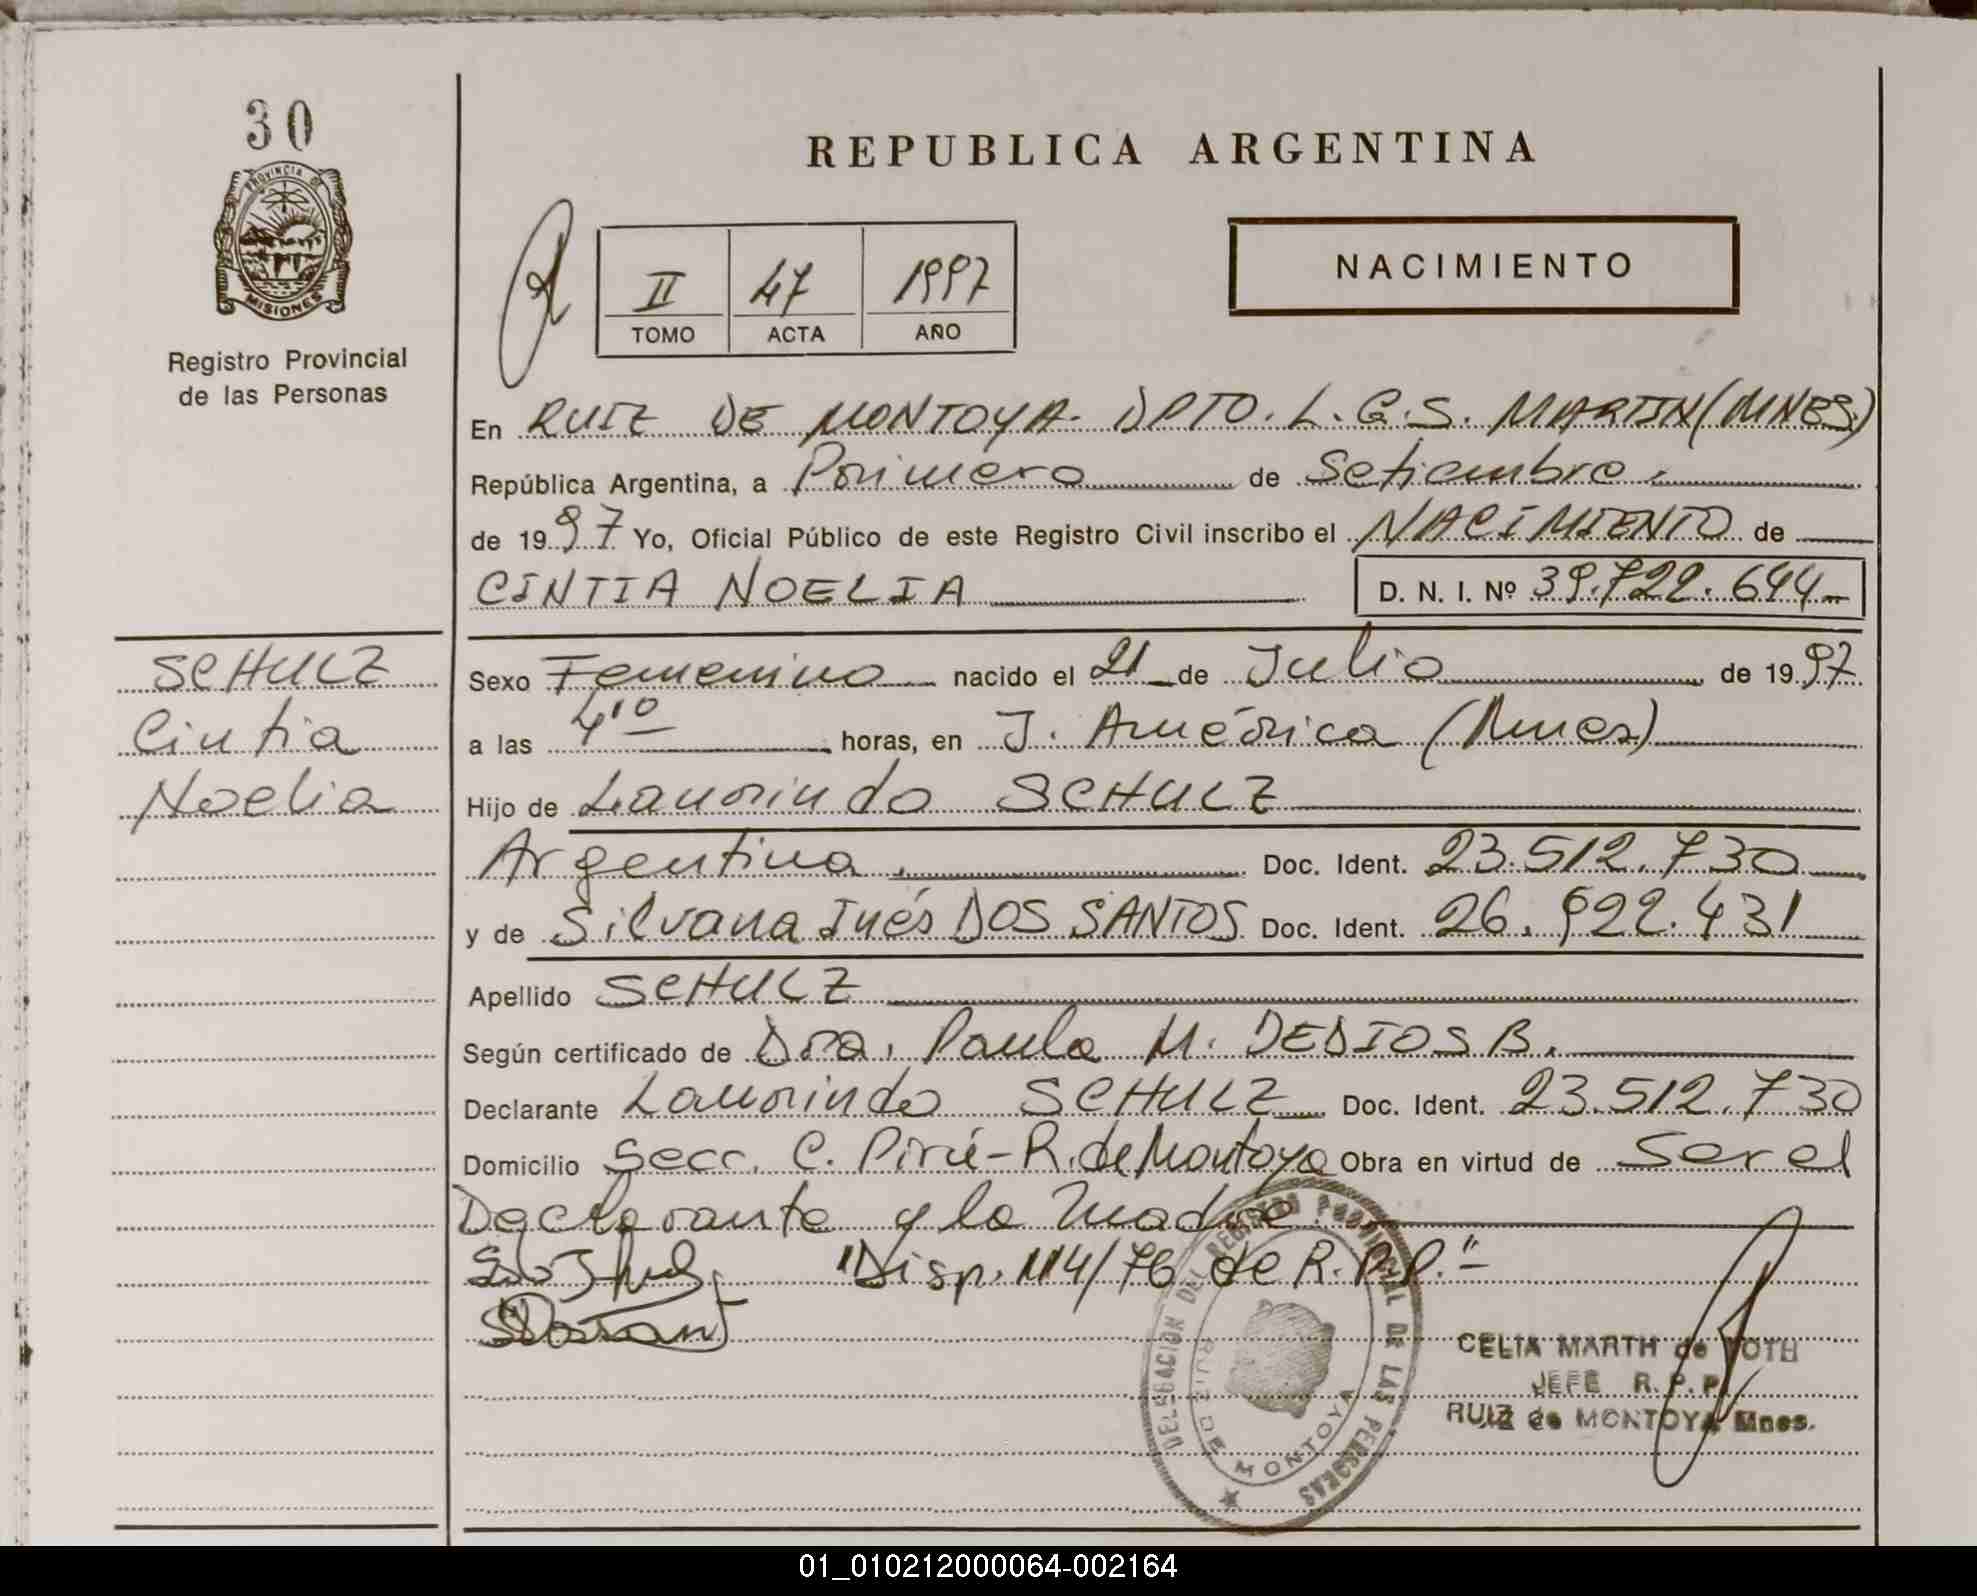 30
PROVINCIA DE
MISIONES
Registro Provincial
de las Personas
REPUBLICA ARGENTINA
II 47 1997
TOMO ACTA AÑO
NACIMIENTO
En RUIZ DE MONTOYA. DPTO. L.G.S. MARTIN (MNES.)
República Argentina, a Primero de Setiembre.
de 1997 Yo, Oficial Público de este Registro Civil inscribo el NACIMIENTO de
CINTIA NOELIA D. N. I. Nº 39.722.644
SCHULZ
Cintia
Noelia
Sexo Femenino nacido el 21 de Julio de 1997
a las 4 10 horas, en J. América (Mnes)
Hijo de Laurindo SCHULZ
Argentina. Doc. Ident. 23.512.730
y de Silvana Inés DOS SANTOS Doc. Ident. 26.922.431
Apellido SCHULZ
Según certificado de Dra. Paula M. DEDIOS B.
Declarante Laurindo SCHULZ Doc. Ident. 23.512.730
Domicilio Secc. C. Pirié-R. de Montoya Obra en virtud de Ser el
Declarante y la Madre.
"Disp. 114/76 de R.P.P."-
DELEGACION DEL REGISTRO PROVINCIAL DE LAS PERSONAS
RUIZ DE MONTOYA
CELIA MARTH de TOTH
JEFE R. P. P.
RUIZ de MONTOYA Mnes.
01_010212000064-002164